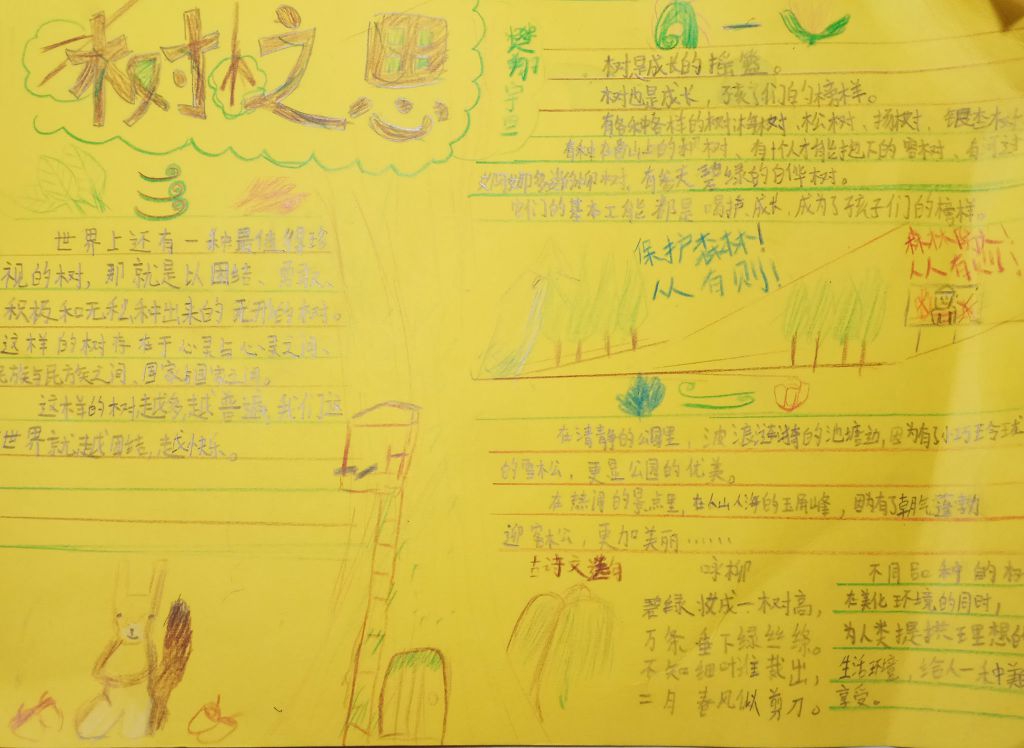 树之思
一
树是成长的摇篮。
树也是成长,孩子们的榜样。
有各种各样的树:梅树、松树、杨树、银杏树
有种在高山上的 树、有十个人才能 的 树、有河边
婀娜多姿的柳树,有参天碧绿的白桦树。
它们的基本功能都是喝护成长,成为了孩子们的榜样。
保护森林!
人人有则!
森林防火!
人人有则!
二
在清静的公园里,波浪涟漪的池塘边,因为有了小巧玉令珑
的雪松,更显公园的优美。
在热闹的景点里,在人山人海的玉屏山峰,因为有了朝气蓬勃
迎客松,更加美丽……
三
世界上还有一种最值得珍
视的树,那就是以团结、勇敢、
积极和无私种出来的无形的树。
这样的树存在于心灵与心灵之间、
民族与民族之间、国家与国家之间。
这样的树越多,越普遍,我们这
世界就越团结,越快乐。
古诗文
咏柳
碧绿妆成一树高,
万条垂下绿丝绦。
不知细叶谁裁出,
二月春风似剪刀。
不同品种的树
在美化环境的同时,
为人类提供王里想的
生活环境,给人一种美
享受。